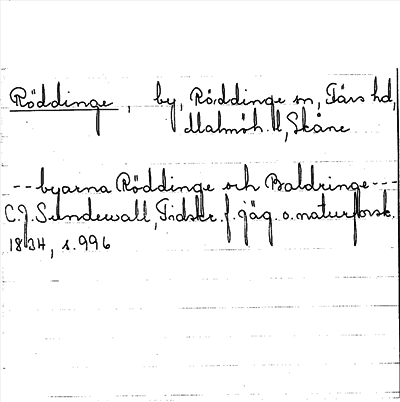 Röddinge, by, Röddinge sn, Färs hd,
Malmöh. l, Skåne
-- byarna Röddinge och Baldringe ---
C.J. Sundewall, Tidskr. f. jäg. o. naturforsk.
1834, s. 996